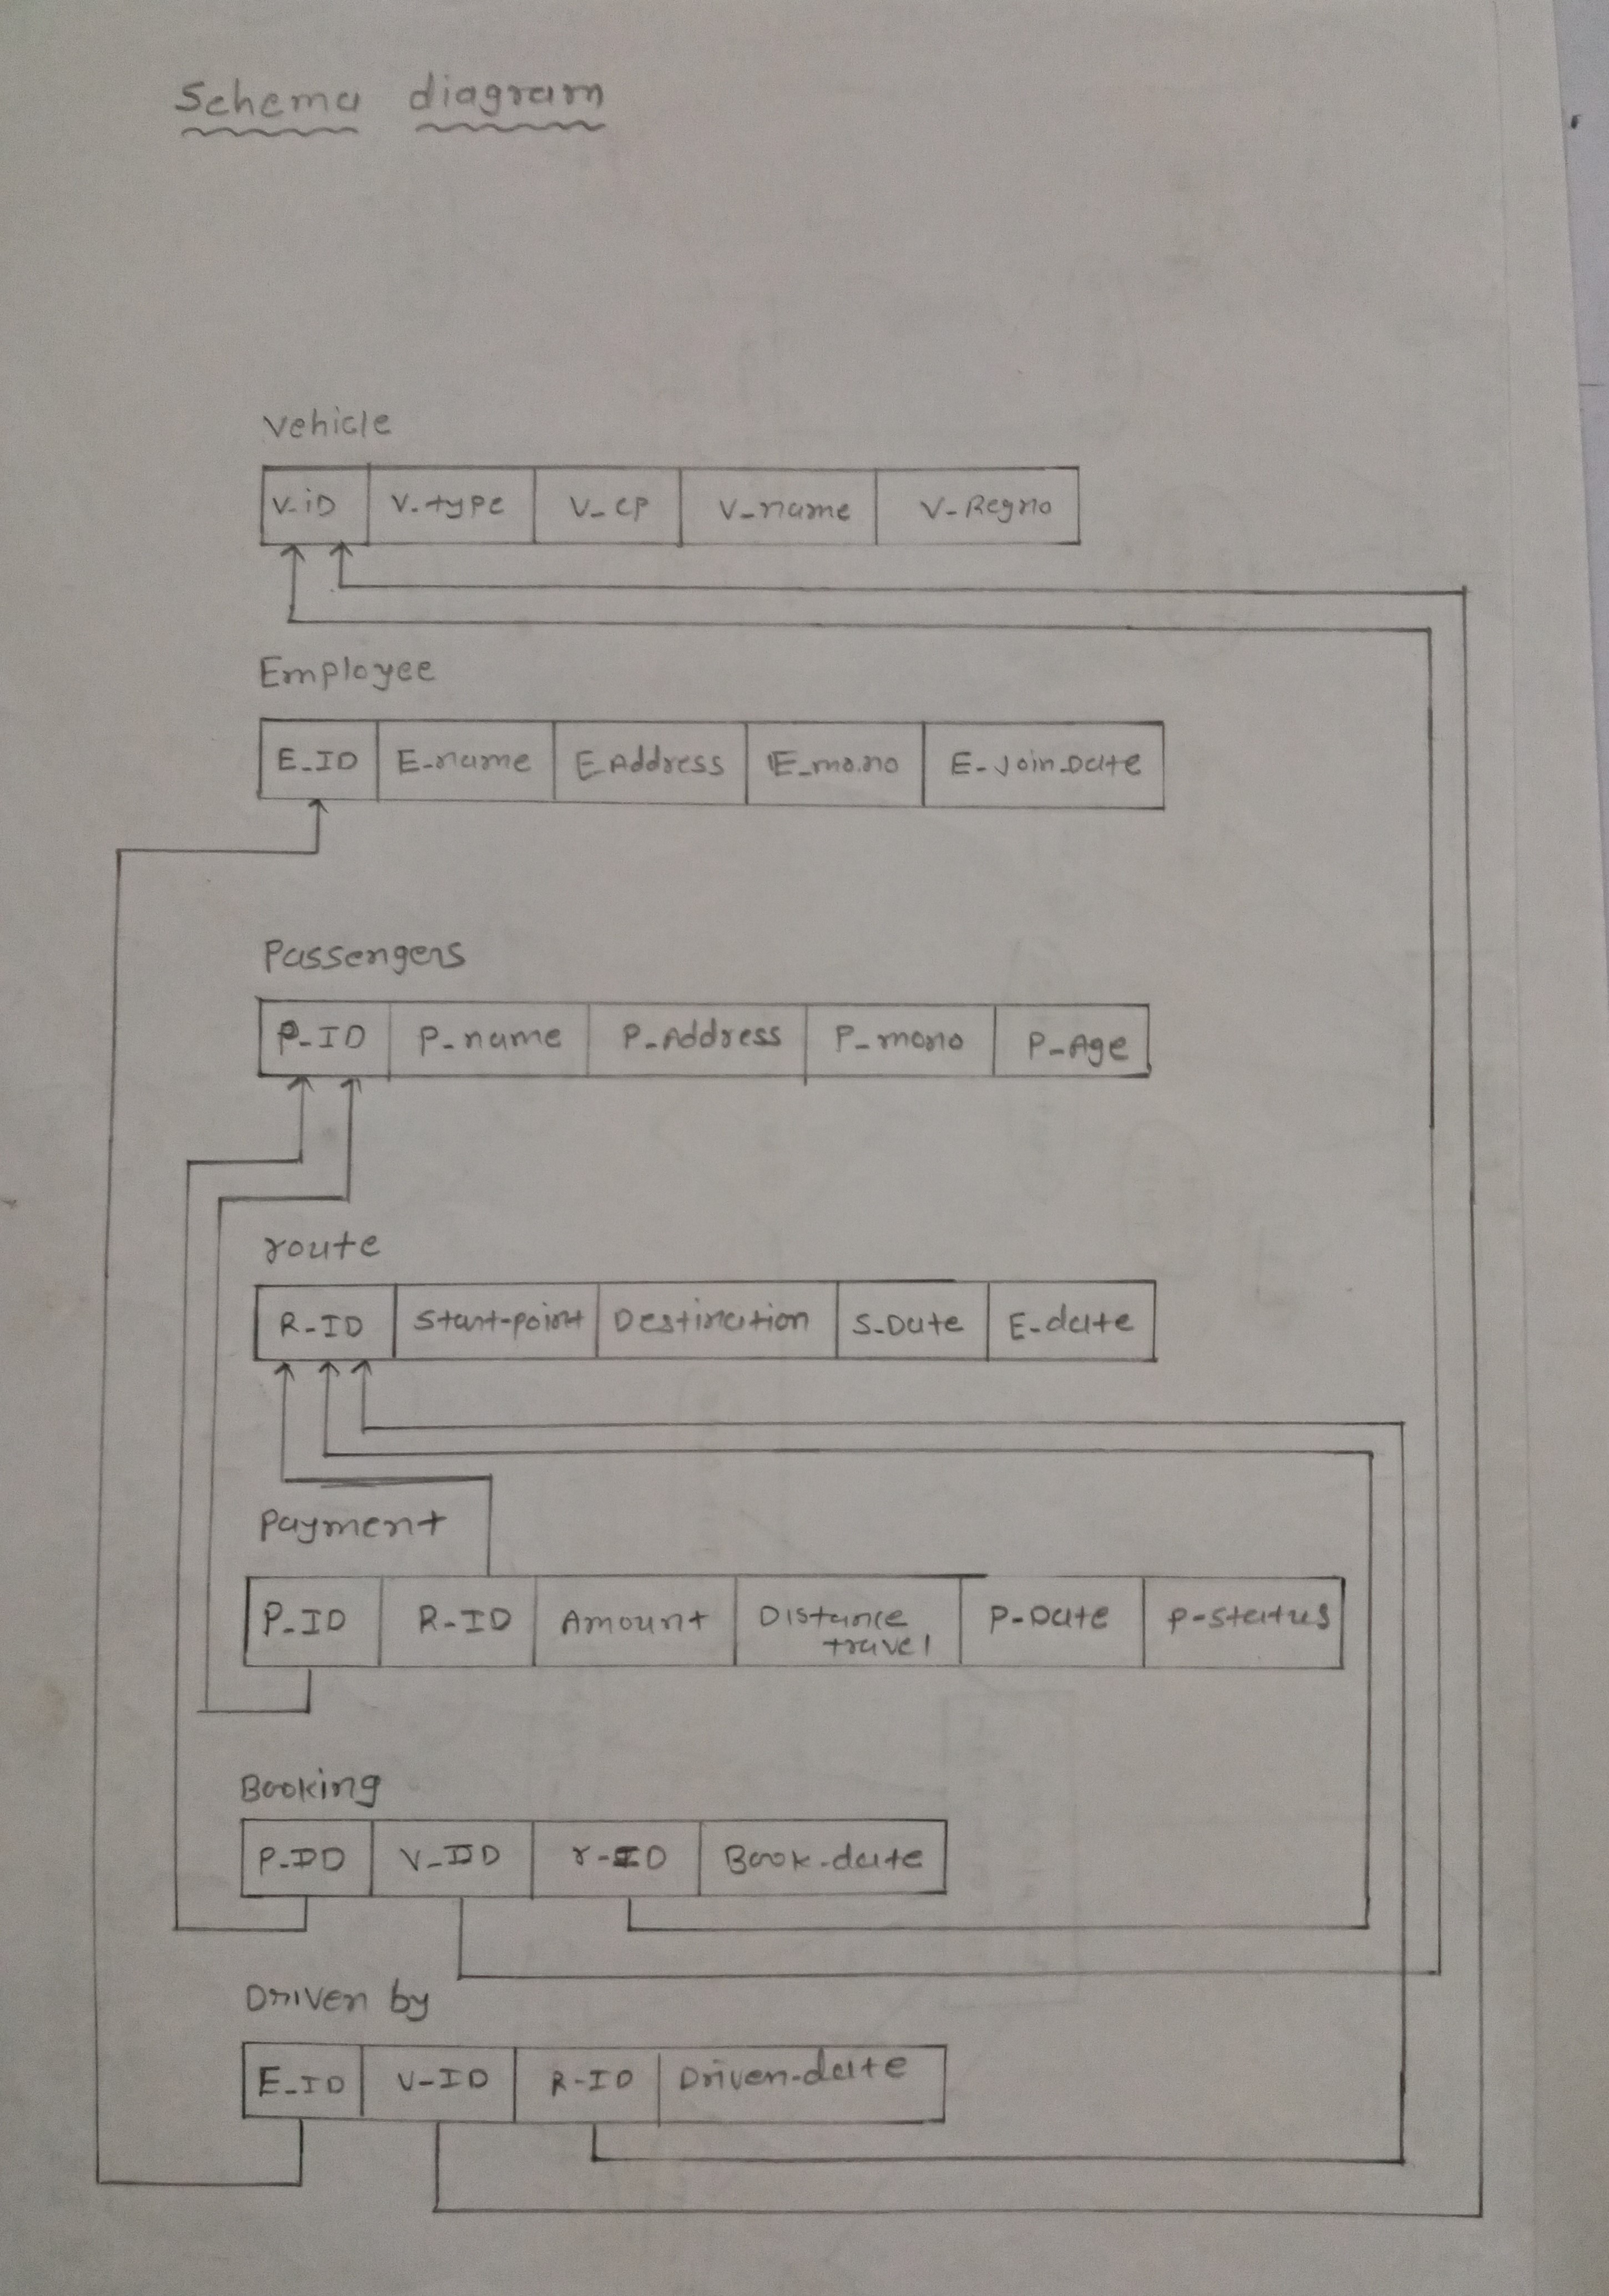 Schema diagram
Vehicle
V-iD V-type V-cp V-name V-Regno
Employee
E-ID E-name E-Address E-mo.no E-Join-Date
Passengers
P-ID P-name P-Address P-mono P-Age
route
R-ID Start-point Destination S-Date E-date
Payment
P-ID R-ID Amount Distance travel P-Date P-status
Booking
P-ID V-ID r-ID Book-date
Driven by
E-ID V-ID R-ID Driven-date